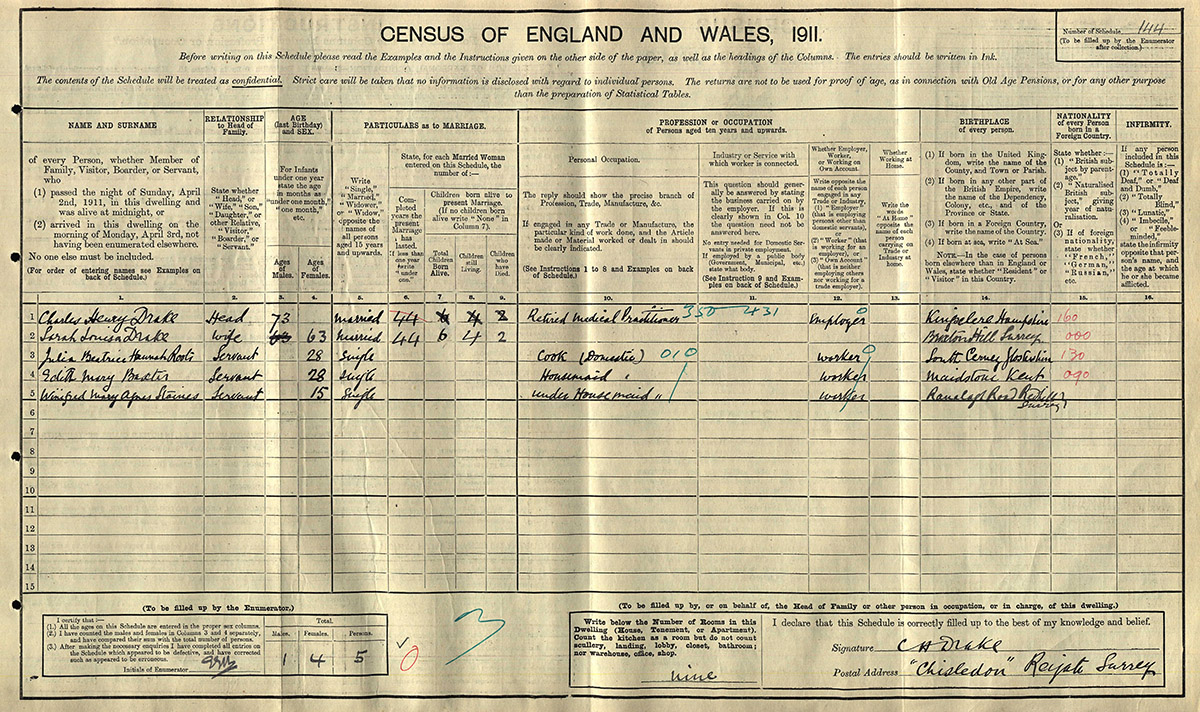 CENSUS OF ENGLAND AND WALES, 1911.
Number of Schedule 144
(To be filled up by the Enumerator
after collection.)
Before writing on this Schedule please read the Examples and the Instructions given on the other side of the paper, as well as the headings of the Columns. The entries should be written in Ink.
The contents of the Schedule will be treated as confidential. Strict care will be taken that no information is disclosed with regard to individual persons. The returns are not to be used for proof of age, as in connection with Old Age Pensions, or for any other purpose
than the preparation of Statistical Tables.
NAME AND SURNAME
of every Person, whether Member of
Family, Visitor, Boarder, or Servant,
who
(1) passed the night of Sunday, April
2nd, 1911, in this dwelling and
was alive at midnight, or
(2) arrived in this dwelling on the
morning of Monday, April 3rd, not
having been enumerated elsewhere.
No one else must be included.
(For order of entering names see Examples on
back of Schedule.)
RELATIONSHIP
to Head of
Family.
State whether
"Head," or
"Wife," "Son,"
"Daughter," or
other Relative,
"Visitor,"
"Boarder," or
"Servant."
AGE
(last Birthday)
and SEX.
For Infants
under one year
state the age
in months as
"under one month,"
"one month,"
Ages
of
Males.
Ages
of
Females.
PARTICULARS as to MARRIAGE.
Write
"Single,"
"Married,"
"Widower,"
or "Widow,"
opposite the
names of
all persons
aged 15 years
and upwards.
State, for each Married Woman
entered on this Schedule, the
number of :—
Completed
years the
present
Marriage
has
lasted.
If less than
one year
write
"under
one."
Children born alive to
present Marriage.
(If no children born
alive write "None" in
Column 7).
Total
Children
Born
Alive.
Children
still
Living.
Children
who
have
Died.
PROFESSION or OCCUPATION
of Persons aged ten years and upwards.
Personal Occupation.
The reply should show the precise branch of
Profession, Trade, Manufacture, &c.
If engaged in any Trade or Manufacture, the
particular kind of work done, and the Article
made or Material worked or dealt in should
be clearly indicated.
(See Instructions 1 to 8 and Examples on back
of Schedule.)
Industry or Service with
which worker is connected.
This question should gener-
ally be answered by stating
the business carried on by
the employer. If this is
clearly shown in Col. 10
the question need not be
answered here.
No entry needed for Domestic Ser-
vants in private employment.
If employed by a public body
(Government, Municipal, etc.)
state what body.
(See Instruction 9 and Exam-
ples on back of Schedule.)
Whether Employer,
Worker,
or Working on
Own Account.
Write opposite the
name of each person
engaged in any
Trade or Industry,
(1) "Employer"
(that is employing
persons other than
domestic servants),
or
(2) "Worker" (that
is working for an
employer), or
(3) "Own Account"
(that is neither
employing others
nor working for a
trade employer).
Whether
Working at
Home.
Write the
words
"At Home"
opposite the
name of
each person
carrying on
Trade or
Industry at
home.
BIRTHPLACE
of every person.
(1) If born in the United King-
dom, write the name of the
County, and Town or Parish.
(2) If born in any other part of
the British Empire, write
the name of the Dependency,
Colony, etc., and of the
Province or State.
(3) If born in a Foreign Country,
write the name of the Country.
(4) If born at sea, write "At Sea."
NOTE.—In the case of persons
born elsewhere than in England or
Wales, state whether "Resident" or
"Visitor" in this Country.
NATIONALITY
of every Person
born in a
Foreign Country.
State whether :—
(1) "British sub-
ject by parent-
age."
(2) "Naturalised
British sub-
ject," giving
year of natu-
ralisation.
Or
(3) If of foreign
nationality,
state whether
"French,"
"German,"
"Russian,"
etc.
INFIRMITY.
If any person
included in this
Schedule is :—
(1) "Totally
Deaf," or "Deaf
and Dumb,"
(2) "Totally
Blind,"
(3) "Lunatic,"
(4) "Imbecile,"
or "Feeble-
minded,"
state the infirmity
opposite that per-
son's name, and
the age at which
he or she became
afflicted.
1. 2. 3. 4. 5. 6. 7. 8. 9. 10. 11. 12. 13. 14. 15. 16.
1 Charles Henry Drake Head 73 Married 44 6 4 2 Retired Medical Practitioner 350 431 Employer 0 Kingsclere Hampshire 160
2 Sarah Louisa Drake Wife 63 63 Married 44 6 4 2 Buxton Hill Surrey 000
3 Julia Beatrice Hannah Roots Servant 28 Single Cook (Domestic) 010 worker 0 South Cerney Glostershire 130
4 Edith Mary Baxter Servant 28 Single Housemaid " worker Maidstone Kent 090
5 Winifred Mary Agnes Staines Servant 15 Single under Housemaid " worker Ranelagh Road Redhill
Surrey
6
7
8
9
10
11
12
13
14
15
(To be filled up by the Enumerator.)
I certify that :—
(1.) All the ages on this Schedule are entered in the proper sex columns.
(2.) I have counted the males and females in Columns 3 and 4 separately,
and have compared their sum with the total number of persons.
(3.) After making the necessary enquiries I have completed all entries on
the Schedule which appeared to be defective, and have corrected
such as appeared to be erroneous.
Initials of Enumerator
Total.
Males. Females. Persons.
1 4 5
0
3
(To be filled up by, or on behalf of, the Head of Family or other person in occupation, or in charge, of this dwelling.)
Write below the Number of Rooms in this
Dwelling (House, Tenement, or Apartment).
Count the kitchen as a room but do not count
scullery, landing, lobby, closet, bathroom;
nor warehouse, office, shop.
nine
I declare that this Schedule is correctly filled up to the best of my knowledge and belief.
Signature C H Drake
Postal Address "Chisledon" Reigate Surrey